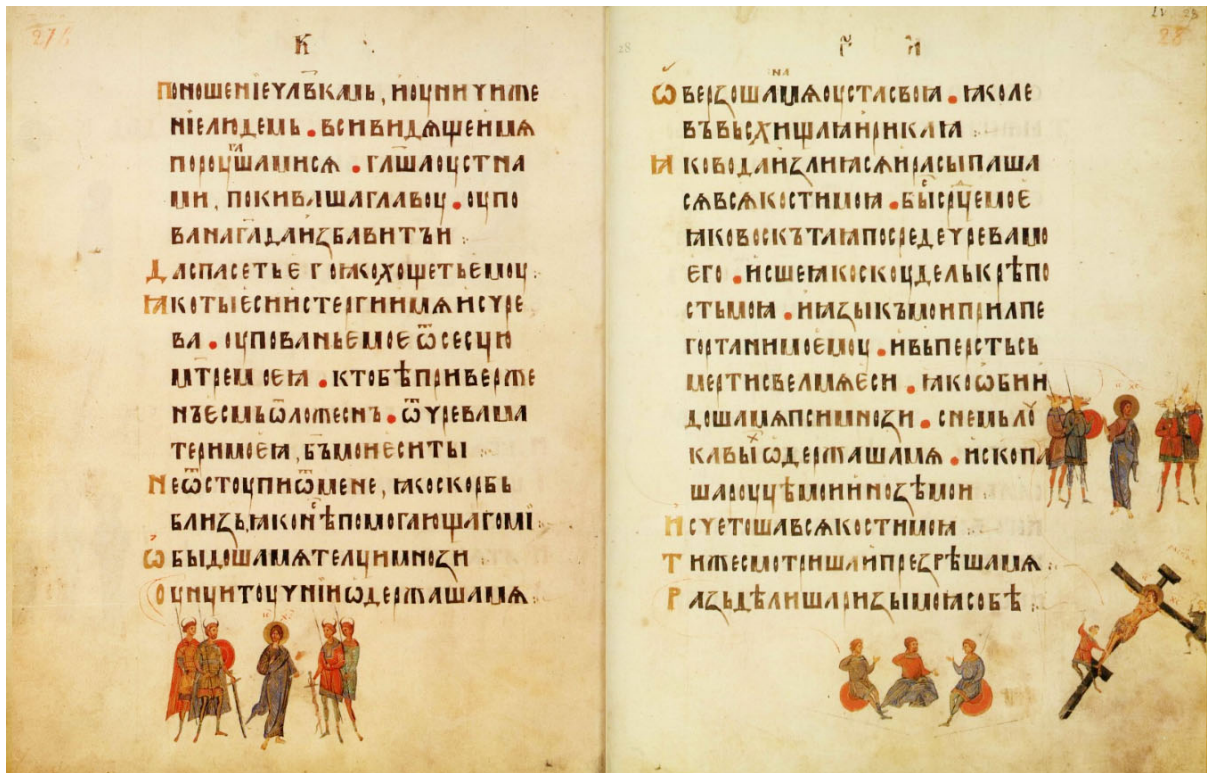 27б
К
Поношенїе ч҃лвкамь, и оуничиже
нїе людемь . вси видѧщеи мѧ
пороугашамисѧ . г҃лаша оустна
ми, покиваша главоу . оупо
ва на г҃а да избавитъ и
Да спасеть его ꙗко хощеть емоу
Ꙗко ты еси истергни мѧ ис чре
ва . оупованье мое ѿ сесцю
мт҃ре моеꙗ . к тобѣ приверже
нъ есмь ѿ ложеснъ . ѿ чрева ма
тери моеꙗ, б҃ъ мои еси ты
Не ѿстоупи ѿ мене, ꙗко скорбь
близь, ꙗко нѣ помогающаго мі
Ѡбыдоша мѧ телци мнози
Оунци тоучнїи ѡдержаша мѧ
28
28
Ѿверзоша на мѧ оуста своꙗ . ꙗко ле
въ въсхищаꙗ и рикаꙗ
Ꙗко вода излиꙗсѧ и расыпаша
сѧ всѧ кости моꙗ . бы ср҃це мое
ꙗко воскъ таꙗ посреде чрева мо
его . исше ꙗко скоудель крѣпо
сть моꙗ . и ꙗзыкъ мои прилпе
гортани моемоу . и вь персть сь
мерти свелъ мѧ еси . ꙗко ѡбии
доша мѧ пси мнози . снемъ ло
кавы ѡдержаша мѧ . ископа
ша роуцѣ мои и нозѣ мои
Исчетоша всѧ кости моꙗ
Ти же смотриша и презрѣша мѧ
Раздѣлиша ризы моꙗ собѣ